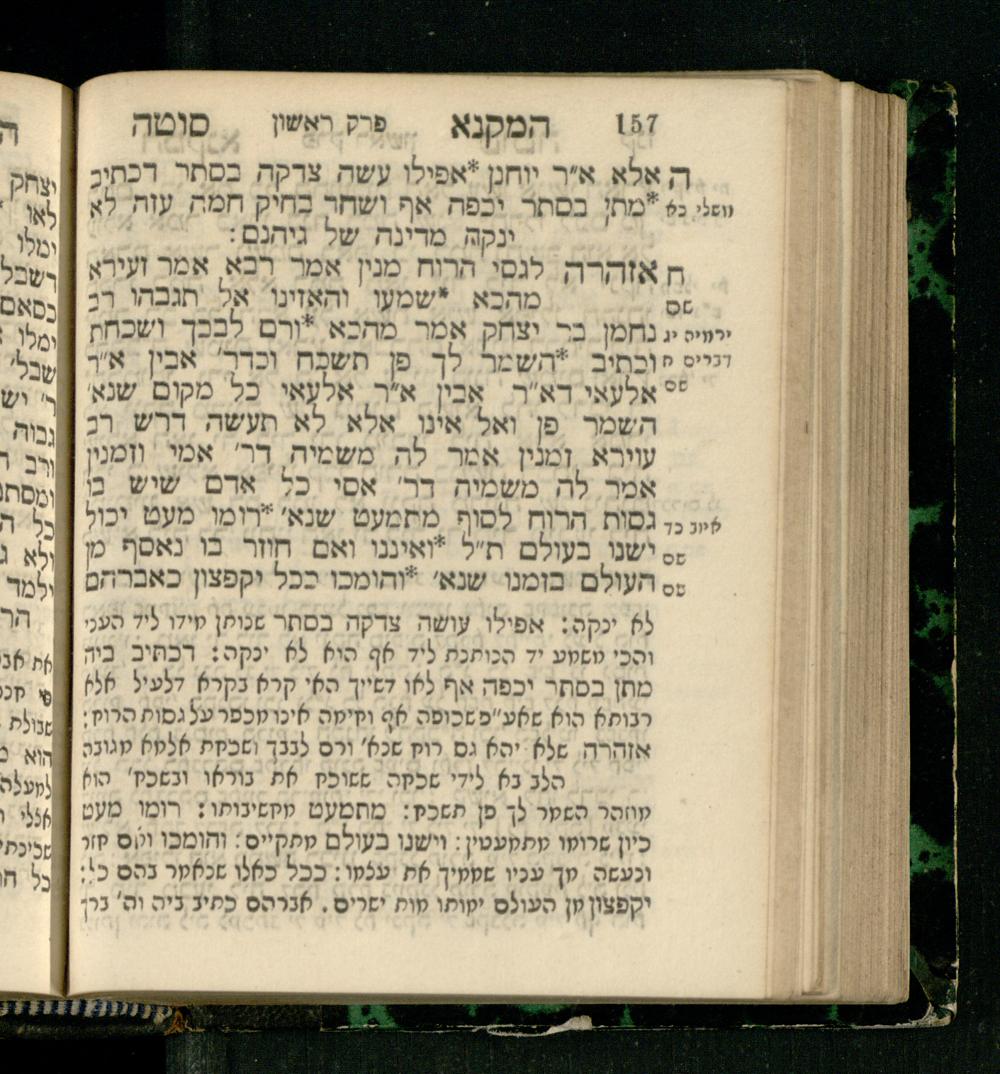 157 המקנא פרק ראשון סוטה
ה אלא א״ר יוחנן *אפילו עשה צדקה בסתר דכתיב
משלי כא *מתן בסתר יכפה אף ושחד בחיק חמה עזה לא
ינקה מדינה של גיהנם:
ח אזהרה לגסי הרוח מנין אמר רבא אמר זעירא
שם מהכא *שמעו והאזינו אל תגבהו רב
ירמיה יג נחמן בר יצחק אמר מהכא *ורם לבבך ושכחת
דברים ח וכתיב *השמר לך פן תשכח וכדר׳ אבין א״ר
שם אלעאי דא״ר אבין א״ר אלעאי כל מקום שנא׳
השמר פן ואל אינו אלא לא תעשה דרש רב
עוירא זמנין אמר לה משמיה דר׳ אמי וזמנין
אמר לה משמיה דר׳ אסי כל אדם שיש בו
איוב כד גסות הרוח לסוף מתמעט שנא׳ *רומו מעט יכול
שם ישנו בעולם ת״ל *ואיננו ואם חוזר בו נאסף מן
שם העולם בזמנו שנא׳ *והומכו ככל יקפצון כאברהם
לא ינקה: אפילו עושה צדקה בסתר שנותן מידו ליד העני
והכי משמע יד הנותנת ליד אף הוא לא ינקה: דכתיב ביה
מתן בסתר יכפה אף לאו דשייך האי קרא בקרא דלעיל אלא
רבותא הוא שאע״פ שכופה אף וחימה אינו מכפר על גסות הרוח:
אזהרה שלא יהא גם רוח שנא׳ ורם לבבך ושכחת אלמא מגובה
הלב בא לידי שכחה ששוכח את בוראו ובשכח׳ הוא
מוזהר השמר לך פן תשכח: מתמעט מחשיבותו: רומו מעט
כיון שרומו מתמעטין: וישנו בעולם מתקיים: והומכו ואם חזר
ונעשה מך עניו שממיך את עצמו: ככל כאלו שנאמר בהם כל:
יקפצון מן העולם ימותו מות ישרים. אברהם כתיב ביה וה׳ ברך